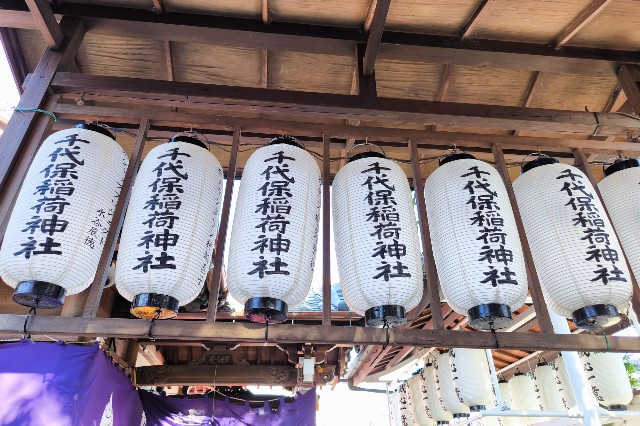 千代保稲荷神社
千代保稲荷神社
千代保稲荷神社
千代保稲荷神社
千代保稲荷神社
千代保稲荷神社